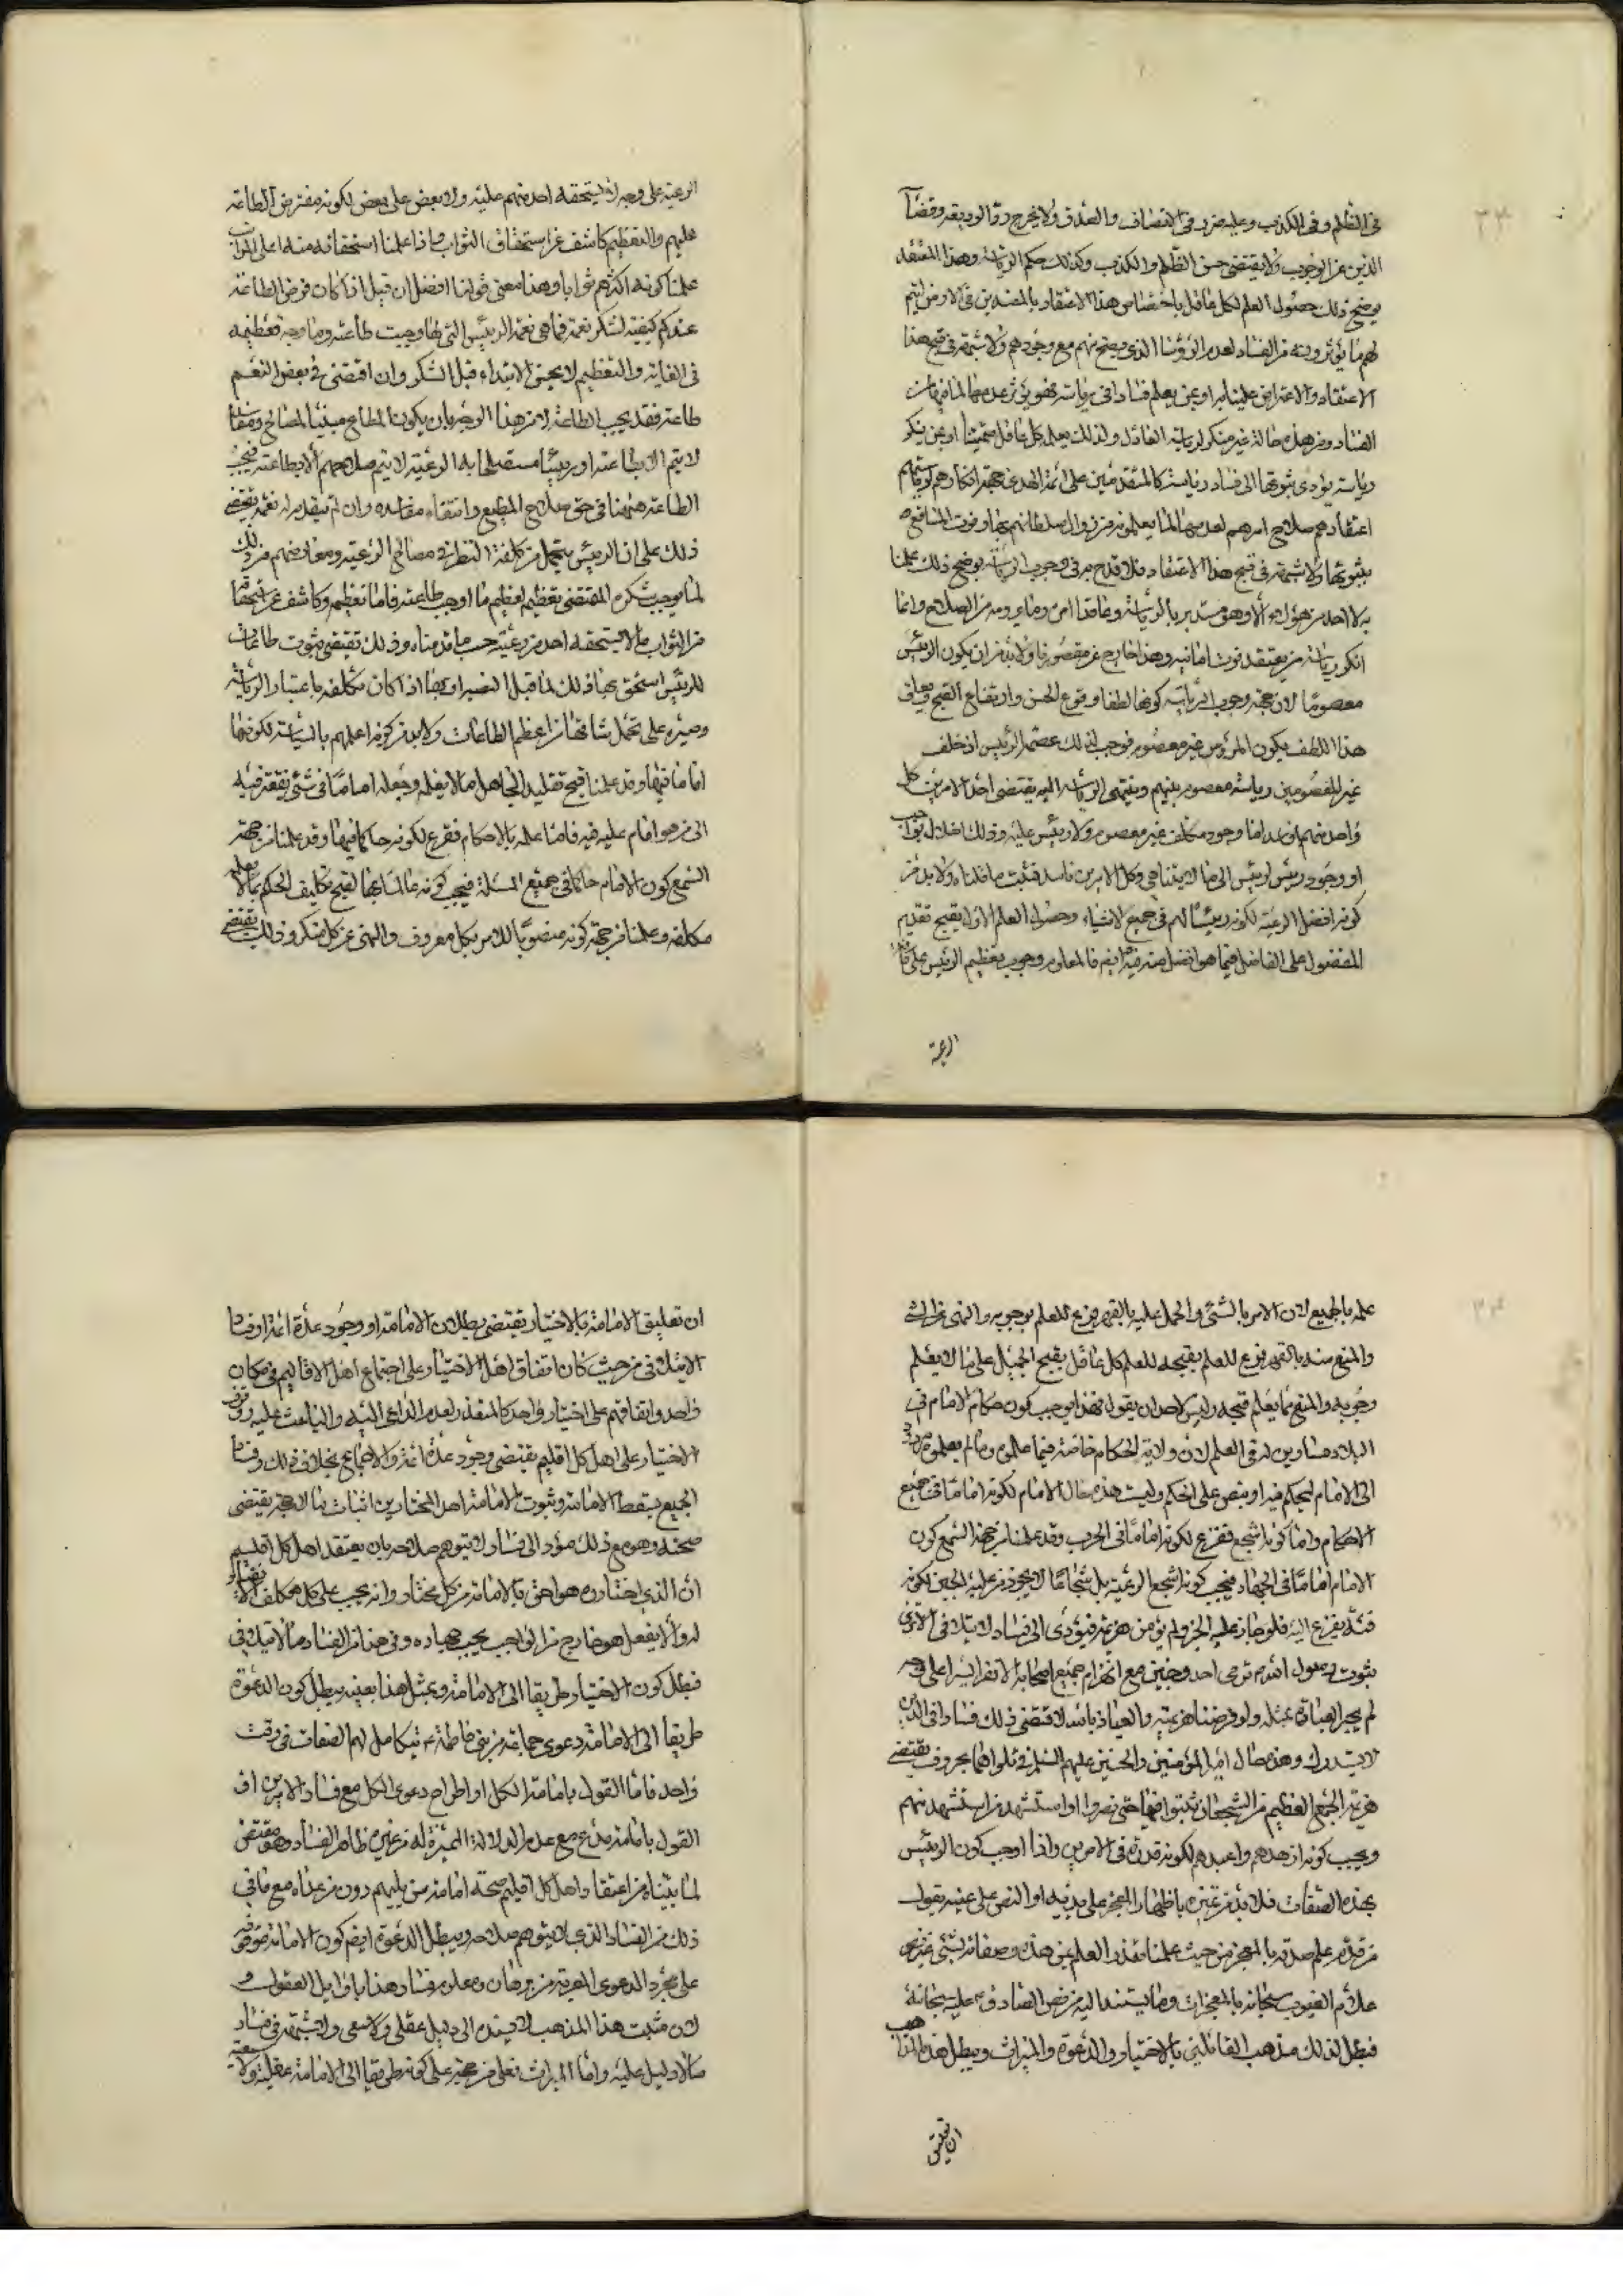 في الظلم وفي الكذب وعليه ضرر في الانصاف والصدق ولا يخرج رد الوديعة وقضآ
الدين عن الوجوب ولا يقتضي حسن الظلم والكذب وكذلك حكم الرياسة وهذا المعتقد
يوضح ذلك حصول العلم لكل عاقل باختصاص هذا الاعتقاد بالمفسدين في الارض ليتم
لهم ما يؤثرونه من الفساد لعدم الرؤسا الذي يصح منهم مع وجودهم ولا شبهة في قبح هذا
الاعتقاد والاعتراض علينا به او بمن يعلم فسادا في رياسة فهو يؤثر عدمها لما فيها من
الفساد ومن هذه حاله غير منكر لرياسة العادل ولذلك يعلم كل عاقل او بمن ينكر
رياسة يؤدي ثبوتها الى فساد رياسته كالمتقدمين على ائمة الهدى من جهة انكارهم لرياستهم
اعتقادهم صلاح امرهم بعدمها لما يعلمونه من زوال سلطانهم بها وفوت المنافع
بثبوتها ولا شبهة في قبح هذا الاعتقاد فلا قدح به في وجوب الرياسة يوضح ذلك علمنا
بان لا احد من هؤلاء الا وهو مستدبر بالرياسة وعاقد امره وما يرومه من الصلاح وانما
انكر رياسة من يعتقد فوت امانيه وهذا خارج عن مقصودنا ولا بد من ان يكون الرئيس
معصوما لان جهة وجوب الرياسة كونها لطفا في وقوع الحسن وارتفاع القبح ويعلق
هذا اللطف بكون المرؤس غير معصوم فوجب لذلك عصمة الرئيس اذ خلف
غير المعصومين رياسة معصوم بينهم وينتهى الرياسة اليه يقتضي احد الامرين كل
واحد منهما فاسد اما وجود مكلف غير معصوم ولا رئيس عليه وذلك اخلال بواجب
او وجود رئيس لرئيس الى ما لا يتناهى وكل الامرين فاسد فثبت ما قلناه ولا بد من
كونه افضل الرعية لكونه رئيسا لهم في جميع الاشياء وحصول العلم الاول بقبح تقديم
المفضول على الفاضل فيما هو افضل منه فيه ايضا فالمعلوم وجوب تعظيم الرئيس على
الرعية
الرعية على وجه لا يستحقه احد منهم عليه ولا بعض على بعض لكونه مفترض الطاعة
عليهم والتعظيم كاشف عن استحقاق الثواب فاذا علمنا استحقاقه منه اعلى المراتب
علمنا كونه اكثرهم ثوابا وهذا معنى قولنا افضل ان قيل اذا كان فرض الطاعة
عندكم كيفية لشكر نعمة فما هي نعمة الرئيس التي لها وجبت طاعته وما وجه تعظيمه
في الغاية والتعظيم لا يحسن الابتداء قبل الشكر وان اقتضى في بعض النعم
طاعة فقد يجب الطاعة لا من هذا الوجه بان يكون المطاع مبينا لمصالح ومفاسد
لا يتم الا بطاعته او رئيسا مستصلحا به الرعية لا يتم صلاحهم الا بطاعته فيجب
الطاعة هيهنا في حق صلاح المطيع وانتفاء مفاسده وان لم يتقدم له نعمة يقتضي
ذلك على ان الرئيس يتحمل من كلفة النظر في مصالح الرعية ومعاونتهم من ذلك
لما يوجب شكره المقتضي تعظيم لعظيم ما اوجب طاعته فاما تعظيمه وكاشف عن استحقاقه
من الثواب ما لا يستحقه احد من رعيته حسب ما قدمناه وذلك يقتضي ثبوت طاعات
للرئيس استحق بها ذلك لما قبل النصب او بها اذا كان تكلفه باعتبار الرياسة
وصبره على تحمل مشاقها من اعظم الطاعات ولا بد من كونه اعلمهم بالسياسة لكونه
اماما فيها وقد علمنا قبح تقليد الجاهل ما لا يعلمه وجعله اماما في شيء يفتقر فيه
الى من هو امام عليه فيه فاما علمه بالاحكام فقرع لكونه حاكما فيها وقد علمنا من جهة
السمع كون الامام حاكما في جميع الملة فيجب كونه عالما بها لقبح تكليف الحكم بما لا يعلمه
مكلفه وعلمنا من جهته كونه منصوبا للامر بكل معروف والنهي عن كل منكر وذلك يقتضي
علمه بالجميع لان الامر بالشئ والحمل عليه بالقهر فرع للعلم بوجوبه والنهي عن الشئ
والمنع منه بالقهر فرع للعلم بقبحه للعلم كل عاقل بقبح الحمل على ما لا يعلم
وجوبه والمنع مما يعلم قبحه وليس لاحد ان يقول فهذا يوجب كون حكام الامام في
البلاد مساوين له في العلم لان ولاية الحكام خاصة فيما علموه وما لم يعلموه مردود
الى الامام ليحكم فيه او ينص على الحكم وليست هذه حال الامام لكونه اماما في جميع
الاحكام واما كونه اشجع فقرع لكونه اماما في الحرب وقد علمنا من جهة السمع كون
الامام اماما في الجهاد فيجب كونه اشجع الرعية بل شجاعا لا يجوز عليه الجبن لكونه
فئة يفزع اليه فلو جاز عليه الجبن ولم يؤمن هزيمته فيؤدى الى فساد لا يتلافى الا ترى
ثبوت رسول الله ص في احد وحنين مع انهزام جميع اصحابه الا نفرا يسيرا على وجه
لم يجر العادة بمثله ولو فرضنا هزيمته والعياذ بالله لاقتضى ذلك فسادا في الدين
لا يستدرك وهذه حال امير المؤمنين والحسين عليهم السلم في بلواهما بحروف يقتضي
هزيمة الجمع العظيم من الشجعان ثبتوا فيها حتى نصروا او استشهد من استشهد منهم
ويجب كونه ازهدهم واعبدهم لكونه قدوة في الامرين واذا اوجب كون الرئيس
بهذه الصفات فلا بد من تميزه باظهار المعجز على يديه او النص على عينه بقول
من قدم علم صدقه بالمعجز من حيث علمنا تعذر العلم بمن هذه صفاته لشئ غيره
علام الغيوب سبحانه بالمعجزات وما يستند اليه من نص الصادق عليه سبحانه
فبطل لذلك مذهب القائلين بالاختيار والدعوة والميراث ويبطل هذه المذاهب
ان تعليق
ان تعليق الامامة بالاختيار يقتضي بطلان الامامة او وجود عدة ائمة او فسادا
لا يتلافى من حيث كان اتفاق اهل الاختيار على اجتماع اهل الاقاليم في مكان
واحد واتفاقهم على اختيار واحد كالمتعذر لعدم الداعي اليه والباعث عليه ووقوف
الاختيار على اهل كل اقليم يقتضي وجود عدة ائمة والاجماع بخلاف ذلك وفساد
الجميع يسقط الامامة وثبوت الامامة احد المختارين اثبات بما لا حجة يقتضي
صحته وهو مع ذلك مؤد الى فساد لا يتوهم صلاحه بان يعتقد اهل كل اقليم
ان الذي اختاروه هو احق بالامامة من كل مختار وانه يجب على كل مكلف الانقياد
له والا يفعل هو خارج من الواجب يجب جهاده وفي هذا من الفساد ما لا يتلافى
فبطل كون الاختيار طريقا الى الامامة وبمثل هذا بعينه يبطل كون الدعوة
طريقا الى الامامة دعوى جماعة من بني فاطمة ع يتكامل لهم الصفات في وقت
واحد فاما القول بامامة الكل او اطراح دعوى الكل مع فساد الامرين او
القول بامامة مدع مع عدم الدلالة المميزة له من غيره ظاهر الفساد وهو مقتض
لما بيناه من اعتقاد اهل كل اقليم صحة امامة من يليهم دون من عداه مع ما في
ذلك من الفساد الذي لا يتوهم صلاحه ويبطل الدعوة ايضا كون الامامة موقوفة
على مجرد الدعوى العرية من برهان ومعلوم فساد هذا باوايل العقول و
لان مثبت هذا المذهب لا يسنده الى دليل عقلي ولا سمعي ولا شبهة في فساد
ما لا دليل عليه واما الميراث فعلى من جهة على كونه طريقا الى الامامة عقلية ولا سمعية